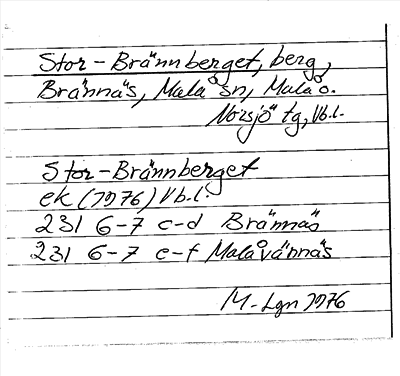 Stor-Brännberget, berg,
Brännäs, Malå sn, Malå o.
Norsjö tg, Vb.l.
Stor-Brännberget
ek (1976) Vb.l.
231 6-7 c-d Brännäs
231 6-7 e-f Malåvännäs
M. Lgn 1976